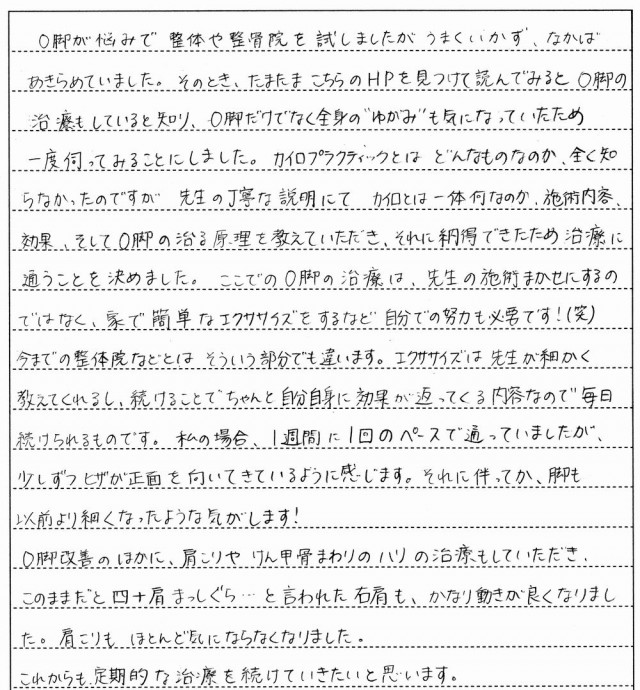 O脚が悩みで 整体や整骨院を 試しましたが うまくいかず、なかば
あきらめていました。そのとき、たまたま こちらのHPを見つけて読んでみると O脚の
治療もしていると知り、O脚だけでなく全身の“ゆがみ”も気になっていたため
一度伺ってみることにしました。カイロプラクティックとは どんなものなのか、全く知
らなかったのですが 先生の丁寧な説明にて カイロとは一体何なのか、施術内容、
効果、そしてO脚の治る原理を教えていただき、それに納得できたため 治療に
通うことを決めました。ここでのO脚の治療は、先生の施術まかせにするの
ではなく、家で簡単なエクササイズをするなど 自分での努力も必要です!(笑)
今までの整体院などとは そういう部分でも違います。エクササイズは先生が細かく
教えてくれるし、続けることでちゃんと自分自身に効果が返ってくる内容なので毎日
続けられるものです。私の場合、1週間に1回のペースで通っていましたが、
少しずつヒザが正面を向いてきているように感じます。それに伴ってか、脚も
以前より細くなったような気がします!
O脚改善のほかに、肩こりや けん甲骨まわりのハリの治療もしていただき、
このままだと四十肩まっしぐら…と言われた右肩も、かなり動きが良くなりまし
た。肩こりも ほとんど気にならなくなりました。
これからも定期的な治療を続けていきたいと思います。